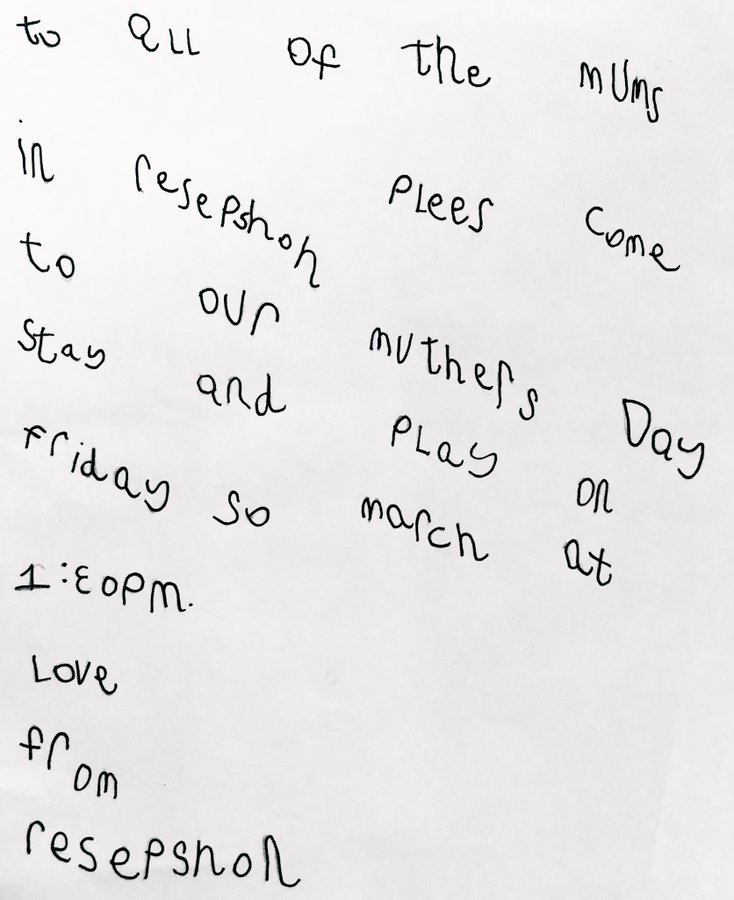 to all of the mums
in resepshon plees come
to our muthers Day
stay and play on
friday 50 march at
1:30pm.
Love
from
resepshon